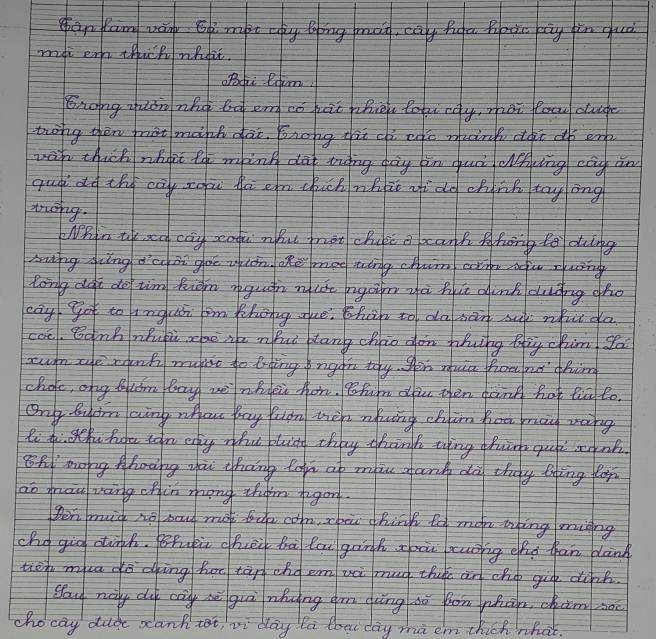 Tập làm văn: Tả một cây bóng mát, cây hoa hoặc cây ăn quả
mà em thích nhất.
Bài làm
Trong vườn nhà bà em có rất nhiều loại cây, mỗi loại được
trồng trên một mảnh đất. Trong tất cả các mảnh đất đó em
vẫn thích nhất là mảnh đất trồng cây ăn quả. Những cây ăn
quả đó thì cây xoài là em thích nhất vì do chính tay ông
trồng.
Nhìn từ xa cây xoài như một chiếc ô xanh khổng lồ đứng
sừng sững ở cuối góc vườn. Rễ mọc từng chùm, cắm sâu xuống
lòng đất để tìm kiếm nguồn nước ngầm và hút dinh dưỡng cho
cây. Gốc to 1 người ôm không xuể. Thân to, da sần sùi như da
cóc. Cành nhiều xoè ra như đang chào đón những bầy chim. Lá
xum xuê xanh mướt to bằng 3 ngón tay. Đến mùa hoa nở chim
chóc, ong bướm bay về nhiều hơn. Chim đậu trên cành hót líu lo.
Ong bướm cùng nhau bay lượn trên những chùm hoa màu vàng
li ti. Khi hoa tàn cây như được thay thành từng chùm quả xanh.
Chỉ trong khoảng vài tháng lớp áo màu xanh đã thay bằng lớp
áo màu vàng chín mọng thơm ngon.
Đến mùa hè sau mỗi bữa cơm, xoài chính là món tráng miệng
cho gia đình. Chiều chiều bà lại gánh xoài xuống chợ bán dành
tiền mua đồ dùng học tập cho em và mua thức ăn cho gia đình.
Sau này dù cây sẽ già nhưng em cũng sẽ bón phân, chăm sóc
cho cây được xanh tốt, vì đây là loại cây mà em thích nhất.